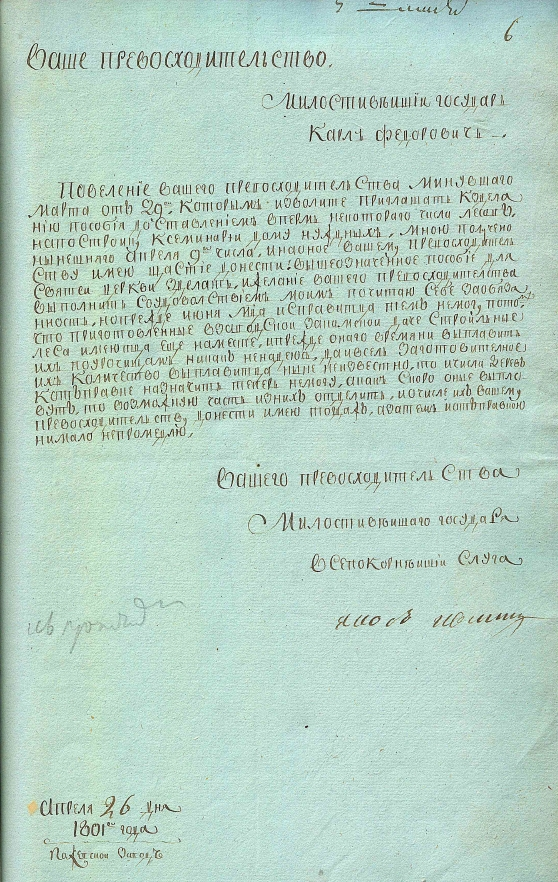 6
Ваше превосходительство.
Милостивѣйшiй государь
Карлъ Федоровичъ
Повеленiе вашего превосходительства минувшаго
марта отъ 29го, которымъ изволите приглашать
нiю пособiя доставленiемъ впермь некотораго числа лесовъ,
напостройку ксеминарiи дому нужныхъ, мною получено
нынешнего Апреля 9го числа, инаоное вашему превосходитель
ству имею щастiе донести: вышеозначенное пособiе для
святей церкви зделать, ижеланiе вашего превосходительства
выполнить судовольствiемъ моимъ почитаю себѣ заобяза
нность, нопрежде июня мца исправитца темъ немогу, пото
что приготовленные даче строильные
леса имеютца еще наместе, ипрежде онаго времяни выплавить
ихъ никакъ ненадеюсь, даивсель заготовительное
ихъ количество выплавитца ныне неизвестно, то ичисла деревъ
котправке назначить теперь немогу, акакъ скоро оные выпла
вятъ, то возможную часть изнихъ отделить, иочисле ихъ вашему
превосходительству донести имею тогдажъ, азатемъ иотправкою
нимало непромедлю.
Вашего превосходительства
Милостивѣйшаго государя
всепокорнѣйшiй слуга
Яковъ
Апреля 26 дня
1801го года
заводъ